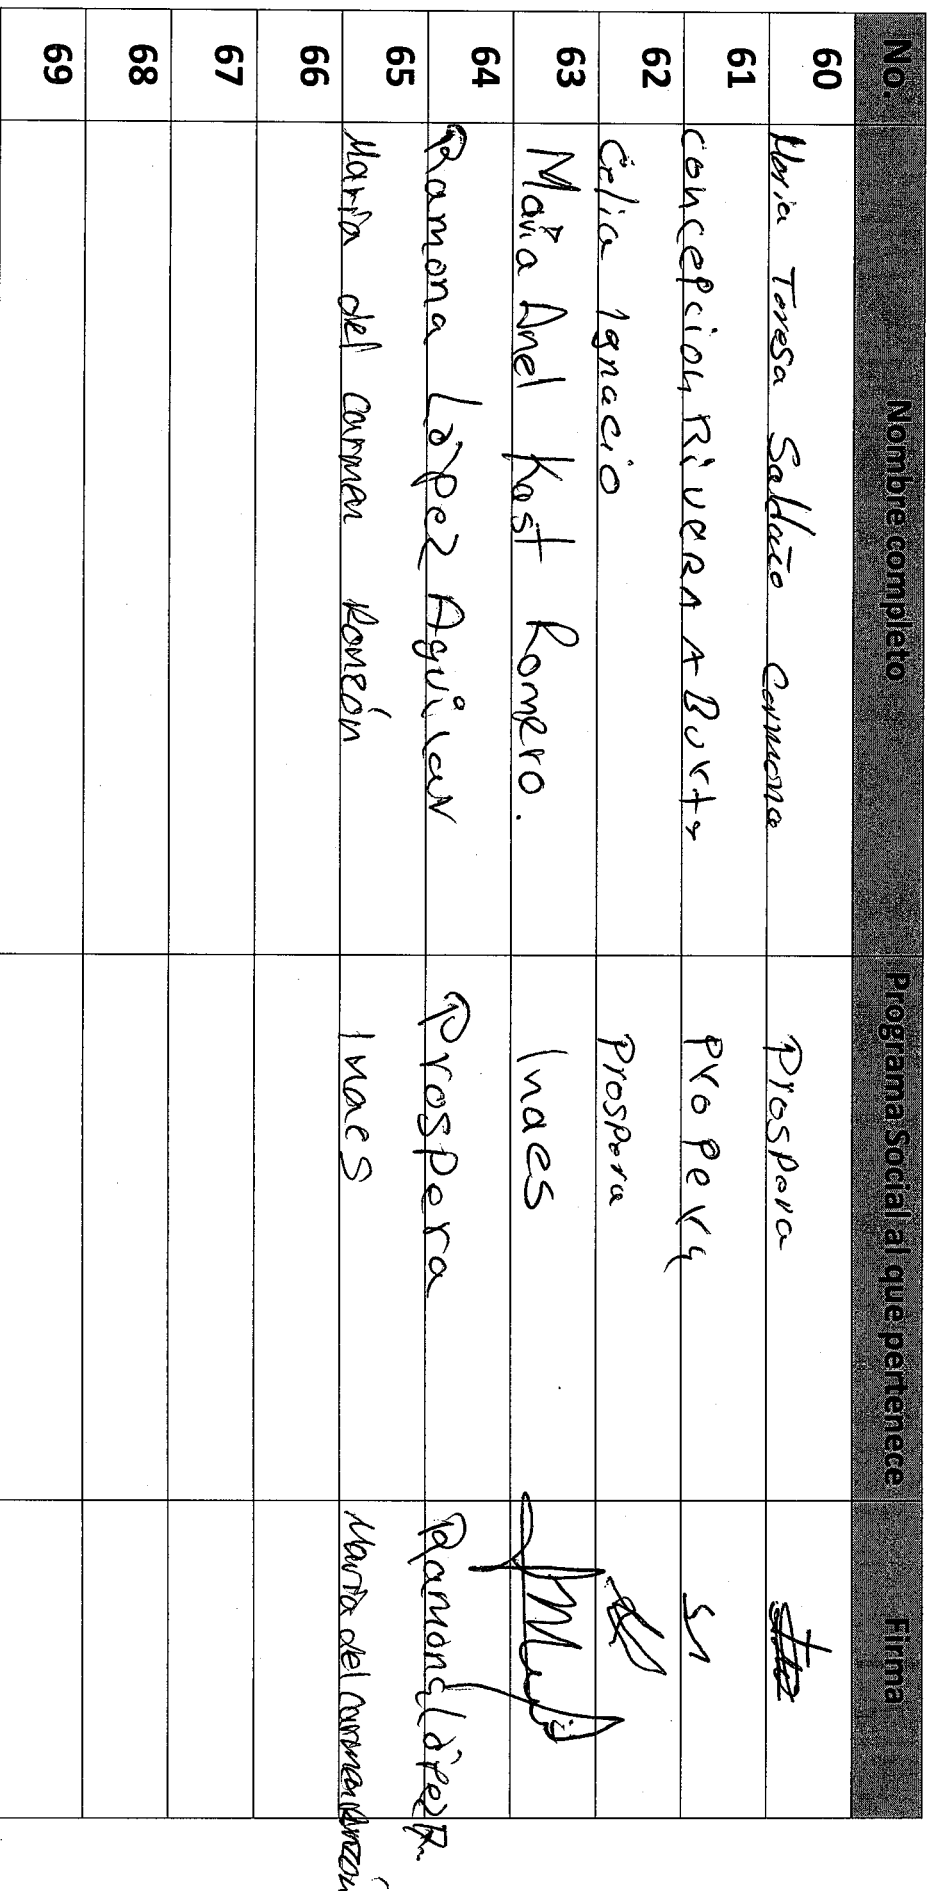 No. Nombre completo Programa Social al que pertenece Firma
60 Maria Teresa Saldaño Carmona Prospera
61 concepcion RiVERA ABurto Properq
62 Celia Ignacio Prospera
63 Maria Anel Kast Romero. Inaes
64 Ramona López Aguilar Prospera Ramona López
65 María del Carmen Ronzón Inaes María del Carmen Ronzón
66
67
68
69